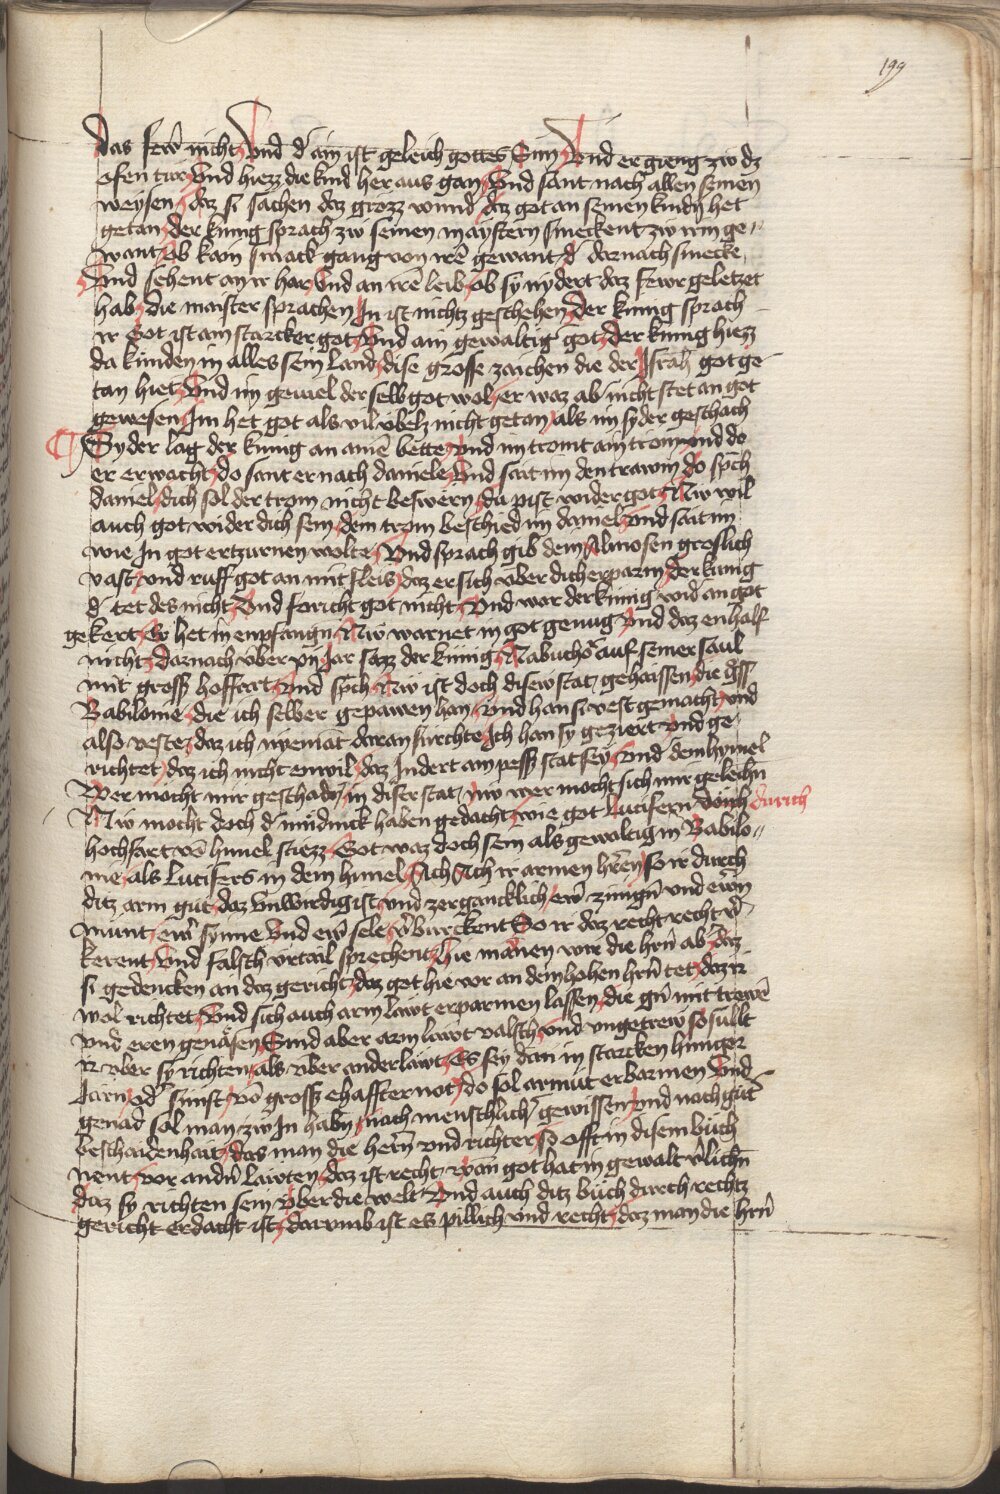 199
das fewr nicht Vnd d' ain ist geleich gottes Sun Vnd er gieng zw dz
ofen tür Vnd hiezz die kind her aus gan Vnd sant nach allen seinen
weysen daz si sachen daz grozz wund daz got an seinen kindn het
getan der kunig sprach zw seinen maystern smeckent zw irm ge„
want Ob kain smack gang von irē gewant d' darnach smecke
Vnd sehent an ir har Vnd an irē leib ob sy nydert daz fewr geletzet
hab die maister sprachen In ist nichtz geschehen Der kunig sprach
ir Got ist ain starcker got Vnd ain gewaltig got der kunig hiezz
da künden in alles sein land dise grosse zaichen die der Israhl got ge
tan hiet Vnd im geuiel der selb got wol er waz ab' nicht stet an got
gewesen Im het got als vil übelz nicht getan als im syder geschach
Syder lag der kunig an ainē bette vnd im tromt ain trom vnd do
er erwacht do sant er nach daniele Vnd sait im den trawm do sp̄ch
daniel dich sol der trom nicht beswern du pist wider got Nw wil
auch got wider dich sein dem trom beschied im daniel vnd sait im
wie In got ertzurnen wolte Vnd sprach gib dem Almosen groslich
vast vnd ruff got an mit fleis daz er sich über dich erparm der kunig
d' tet des nicht Vnd foricht got nicht Vnd war der kunig wid' an got
gekert Er het in enpfangn Nw warnet in got genug Vnd daz enhalf
nicht darnach über xij Jar sazz der kunig Nabucho' auf seiner saul
mit gross hoffart Vnd sp̄ch Nw ist doch disew stat gehaissen die gross
Babilonie die ich selber gepawen han Vnd han si vest gemacht vnd
also veste daz ich nyemāt daran fürchte Ich han sy geziert Vnd ge„
richtet daz ich nicht enwil daz Indert ain pess stat sey Vnd dem hymel
Wer mocht mir geschadn in diser stat nw wer mocht sich mir gelechn
Nw mocht doch d' mūdnick haben gedacht wie got Lucifern durch durich
hochfart vō himel stiezz Got waz doch sein als gewaltig in Babilo„
nie als Lucifers in dem himel Ach Ach ir armen hren so ir durch
ditz arm gut daz vnwirdig ist vnd zergancklich ewr zungn vnd ewrn
munt ewr synne Vnd ewr sele v'bürckent So ir daz recht recht v'
kerent Vnd falsch vrtail sprechent hie manen wir die hrn ab daz
si gedencken an daz gericht daz got hie vor an dem hohen hrn tet daz ir
wol richtet Vnd sich auch arm läwt erparmen lassen die gn mit trewē
vnd eren genäsen Sind aber arm läwt valsch vnd vngetrew so süllt
ir über sy richten als über ander läwt Es sey dan in starcken hunger
Jarn od' sunst vō gross ehaffter not do sol armüt erbarmen Vnd
genad sol man zw In habn nach menschlich' gewissen vnd noch güt'
beschaidenhait das man die herrn vnd richter so offt in disem büch
nent vor andn läwten daz ist recht wan got hat in gewalt v'lichn
daz sy richten sein über die welt Vnd auch ditz büch durch rechtz
gericht erdacht ist darvmb ist es pillich vnd recht daz man die hrn